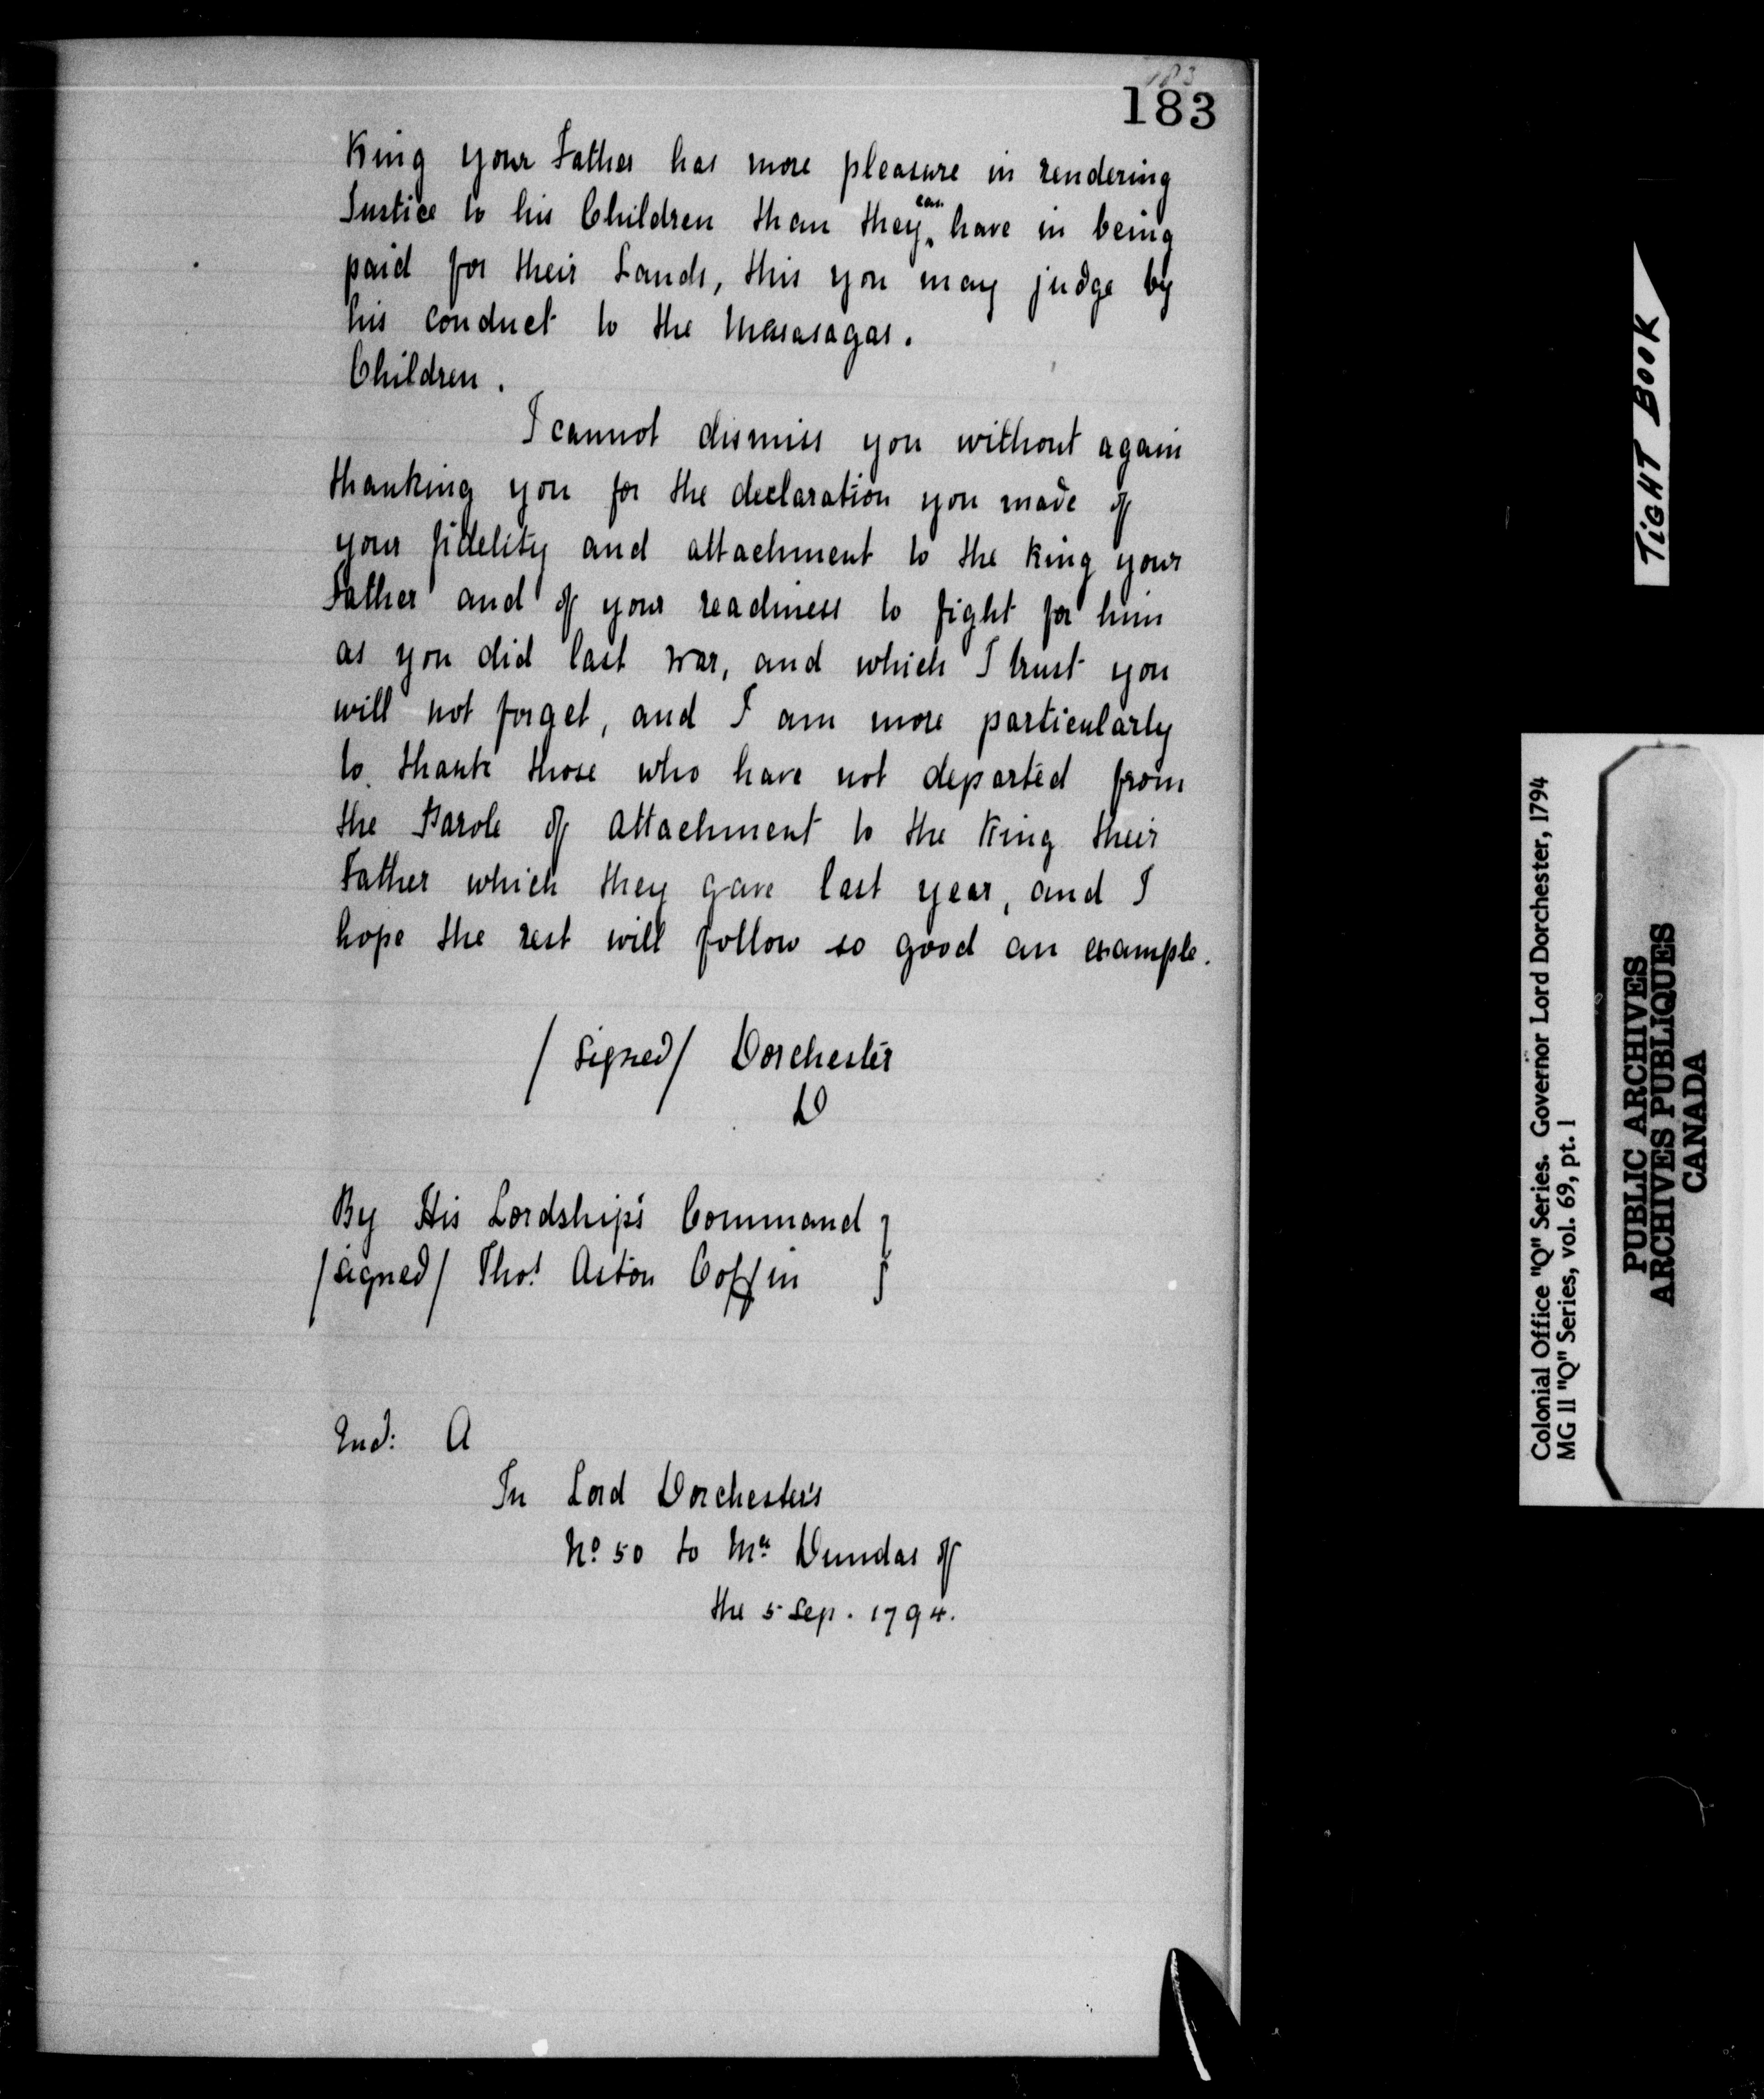 183
183
King your Father has more pleasure in rendering
Justice to his Children than they can have in being
paid for their Lands, this you may judge by
his conduct to the Massasagas.
Children.
I cannot dismiss you without again
thanking you for the declaration you made of
your fidelity and attachment to the King your
Father and of your readiness to fight for him
as you did last war, and which I trust you
will not forget, and I am more particularly
to thank those who have not departed from
the Parole of attachment to the King their
Father which they gave last year, and I
hope the rest will follow so good an example.
/signed/ Dorchester
By His Lordship's Command
/signed/ Thos. Aston Coffin
End: A
In Lord Dorchester's
No. 50 to Mr. Dundas of
the 5 Sep. 1794.
TIGHT BOOK
Colonial Office "Q" Series. Governor Lord Dorchester, 1794
MG 11 "Q" Series, vol. 69, pt. 1
PUBLIC ARCHIVES
ARCHIVES PUBLIQUES
CANADA